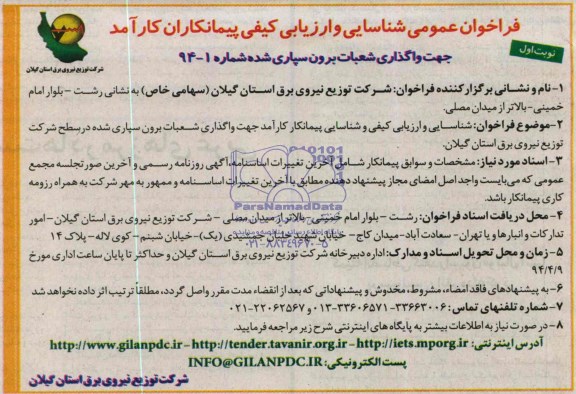 فراخوان عمومی شناسایی و ارزیابی کیفی پیمانکاران کارآمد
نوبت اول
جهت واگذاری شعبات برون سپاری شده شماره ۱-۹۴
شرکت توزیع نیروی برق استان گیلان
۱-نام و نشانی برگزار کننده فراخوان: شرکت توزیع نیروی برق استان گیلان (سهامی خاص) به نشانی رشت - بلوار امام
خمینی-بالاتر از میدان مصلی.
۲-موضوع فراخوان: شناسایی و ارزیابی کیفی و شناسایی پیمانکار کارآمد جهت واگذاری شعبات برون سپاری شده در سطح شرکت
توزیع نیروی برق استان گیلان.
۳-اسناد مورد نیاز: مشخصات و سوابق پیمانکار شامل آخرین تغییرات اساسنامه، آگهی روزنامه رسمی و آخرین صورتجلسه مجمع
عمومی که می‌بایست واجد اصل امضای مجاز پیشنهاد دهنده مطابق با آخرین تغییرات اساسنامه و ممهور به مهر شرکت به همراه رزومه
کاری پیمانکار باشد.
۴- محل دریافت اسناد فراخوان: رشت - بلوار امام خمینی- بالاتر از میدان مصلی - شرکت توزیع نیروی برق استان گیلان-امور
تدارکات و انبارها و یا تهران- سعادت آباد-میدان کاج- خیابان شهید خلیلی جمشیدی (یک)-خیابان شبنم-کوی لاله- پلاک ۱۴
۵-زمان و محل تحویل اسناد و مدارک: اداره دبیرخانه شرکت توزیع نیروی برق استان گیلان و حداکثر تا پایان ساعت اداری مورخ
۹۴/۴/۹
۶-به پیشنهادهای فاقد امضاء، مشروط، مخدوش و پیشنهاداتی که بعد از انقضاء مدت مقرر واصل گردد، مطلقاً ترتیب اثر داده نخواهد شد
۷-شماره تلفنهای تماس: ۳۳۶۶۳۰۰۶-۳۳۶۰۶۵۷۱-۰۱۳ و ۲۲۰۶۲۵۶۷-۰۲۱
۸- در صورت نیاز به اطلاعات بیشتر به پایگاه های اینترنتی شرح زیر مراجعه فرمایید.
آدرس اینترنتی: http://www.gilanpdc.ir - http://tender.tavanir.org.ir - http://iets.mporg.ir
پست الکترونیکی: INFO@GILANPDC.IR
شرکت توزیع نیروی برق استان گیلان
ParsNamadData
۰۲۱-۸۸۳۴۹۶۷۰-۵